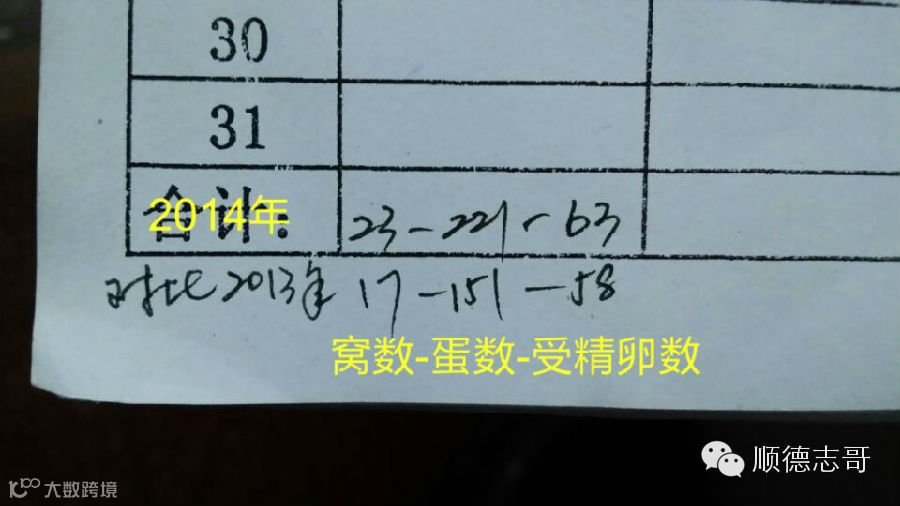 30
31
合计:
2014年
23-221-63
对比2013年 17-151-58
窝数-蛋数-受精卵数
顺德志哥
大数跨境